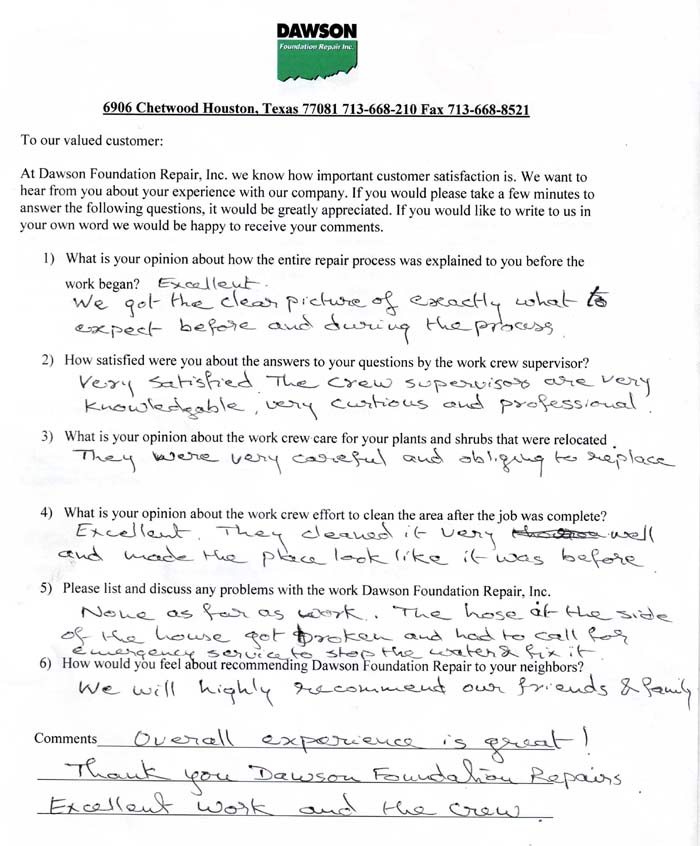 DAWSON
Foundation Repair Inc.
6906 Chetwood Houston, Texas 77081 713-668-210 Fax 713-668-8521
To our valued customer:
At Dawson Foundation Repair, Inc. we know how important customer satisfaction is. We want to
hear from you about your experience with our company. If you would please take a few minutes to
answer the following questions, it would be greatly appreciated. If you would like to write to us in
your own word we would be happy to receive your comments.
1) What is your opinion about how the entire repair process was explained to you before the
work began? Excellent.
We got the clear picture of exactly what to
expect before and during the process.
2) How satisfied were you about the answers to your questions by the work crew supervisor?
Very Satisfied. The crew supervisors are very
knowledgable, very curtious and professional.
3) What is your opinion about the work crew care for your plants and shrubs that were relocated.
They were very careful and obliging to replace
4) What is your opinion about the work crew effort to clean the area after the job was complete?
Excellent. They cleaned it very well
and made the place look like it was before
5) Please list and discuss any problems with the work Dawson Foundation Repair, Inc.
None as far as work. The hose at the side
of the house got broken and had to call for
emergency service to stop the water & fix it
6) How would you feel about recommending Dawson Foundation Repair to your neighbors?
We will highly recommend our friends & family
Comments Overall experience is great!
Thank you Dawson Foundation Repairs.
Excellent work and the crew.